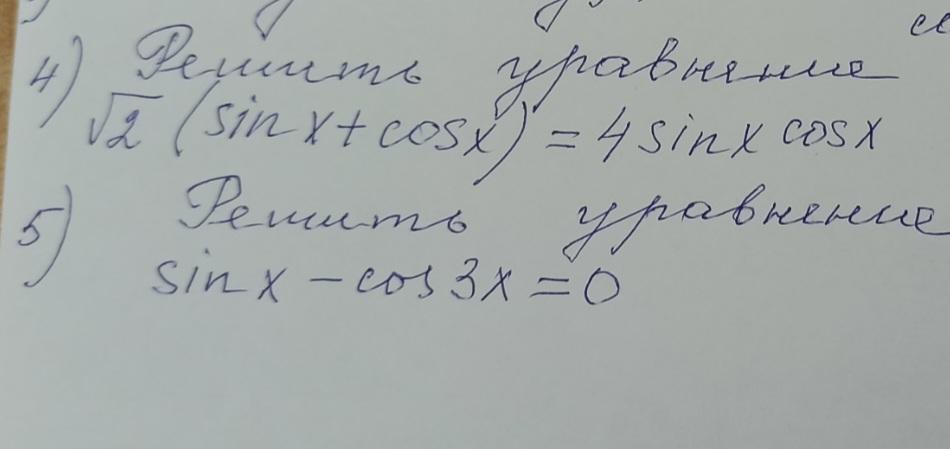 4) Решить уравнение
√2 (sin x + cos x) = 4 sin x cos x
5) Решить уравнение
sin x - cos 3x = 0